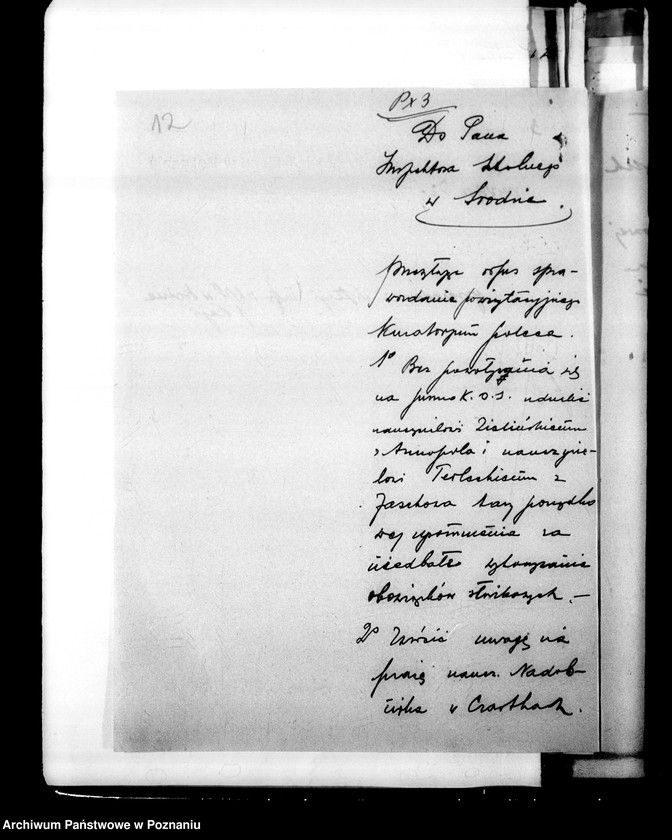 12
Px3
Do Pana
Inspektora Szkolnego
w Środzie.
Przesyłając odpis spra-
wozdania powizytacyjnego
Kuratorjum poleca.
1° Bez powoływania się
na pismo K.O.S. udzielić
nauczycielowi Zielińskiemu
z Annopola i nauczycie-
lowi Terleckiemu z
Jaschowa kary porządko
wej upomnienia za
niedbałe wykonywanie
obowiązków służbowych.—
2° Zwrócić uwagę na
pracę naucz. Nadob-
nika w Czartkach.
Archiwum Państwowe w Poznaniu